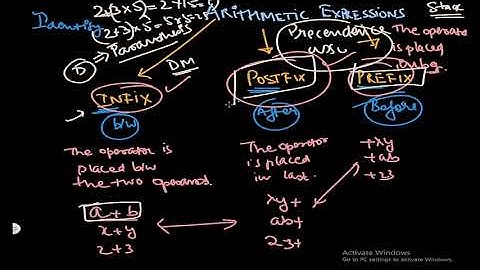 2+(3×5)=2+15=17
(2+3)×5=5×5=25
Identify
ARITHMETIC EXPRESSIONS
Stack
Paranthesis
Precendence
DM
The operator
is placed
INFIX
POSTFIX
PREFIX
b/w
After
Before
The operator is
placed b/w
the two operands.
The operator
is placed
in last.
+xy
+ab
+23
a+b
x+y
2+3
xy+
ab+
23+
Activate Windows
Go to PC settings to activate Windows.